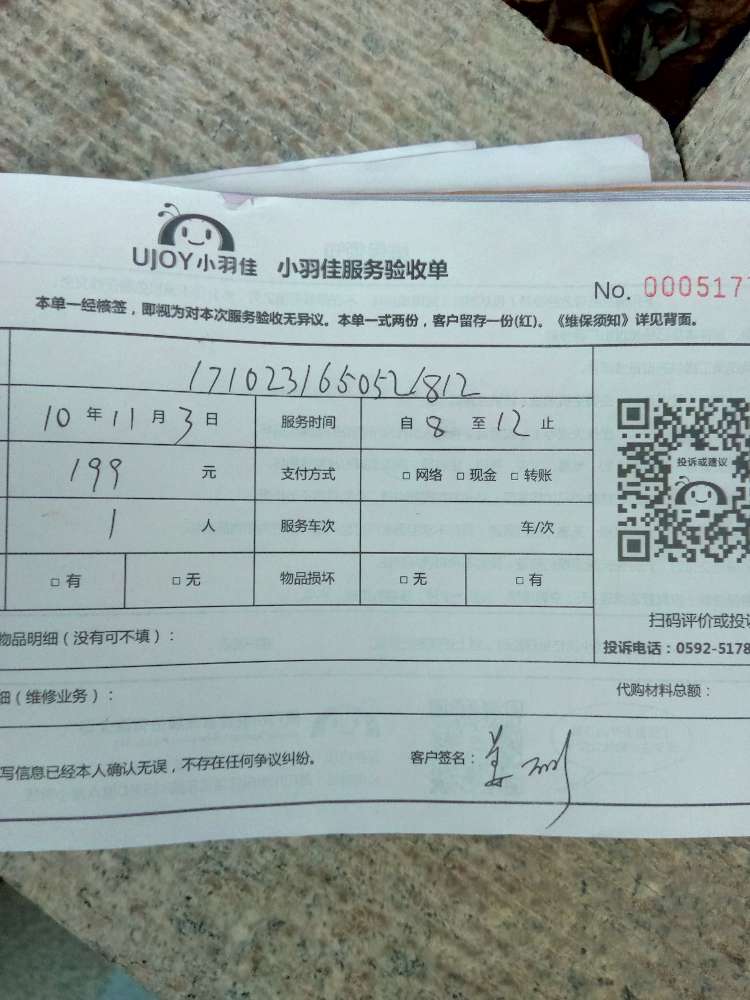 UJOY小羽佳 小羽佳服务验收单
No. 000517
本单一经候签，即视为对本次服务验收无异议。本单一式两份，客户留存一份(红)。《维保须知》详见背面。
1710231650521812
10 年 11 月 3 日 服务时间 自 8 至 12 止
199 元 支付方式 □ 网络 □ 现金 □ 转账
投诉或建议
1 人 服务车次 车/次
□ 有 □ 无 物品损坏 □ 无 □ 有
扫码评价或投诉
物品明细（没有可不填）：
投诉电话：0592-5178
细（维修业务）：
代购材料总额：
写信息已经本人确认无误，不存在任何争议纠纷。 客户签名：